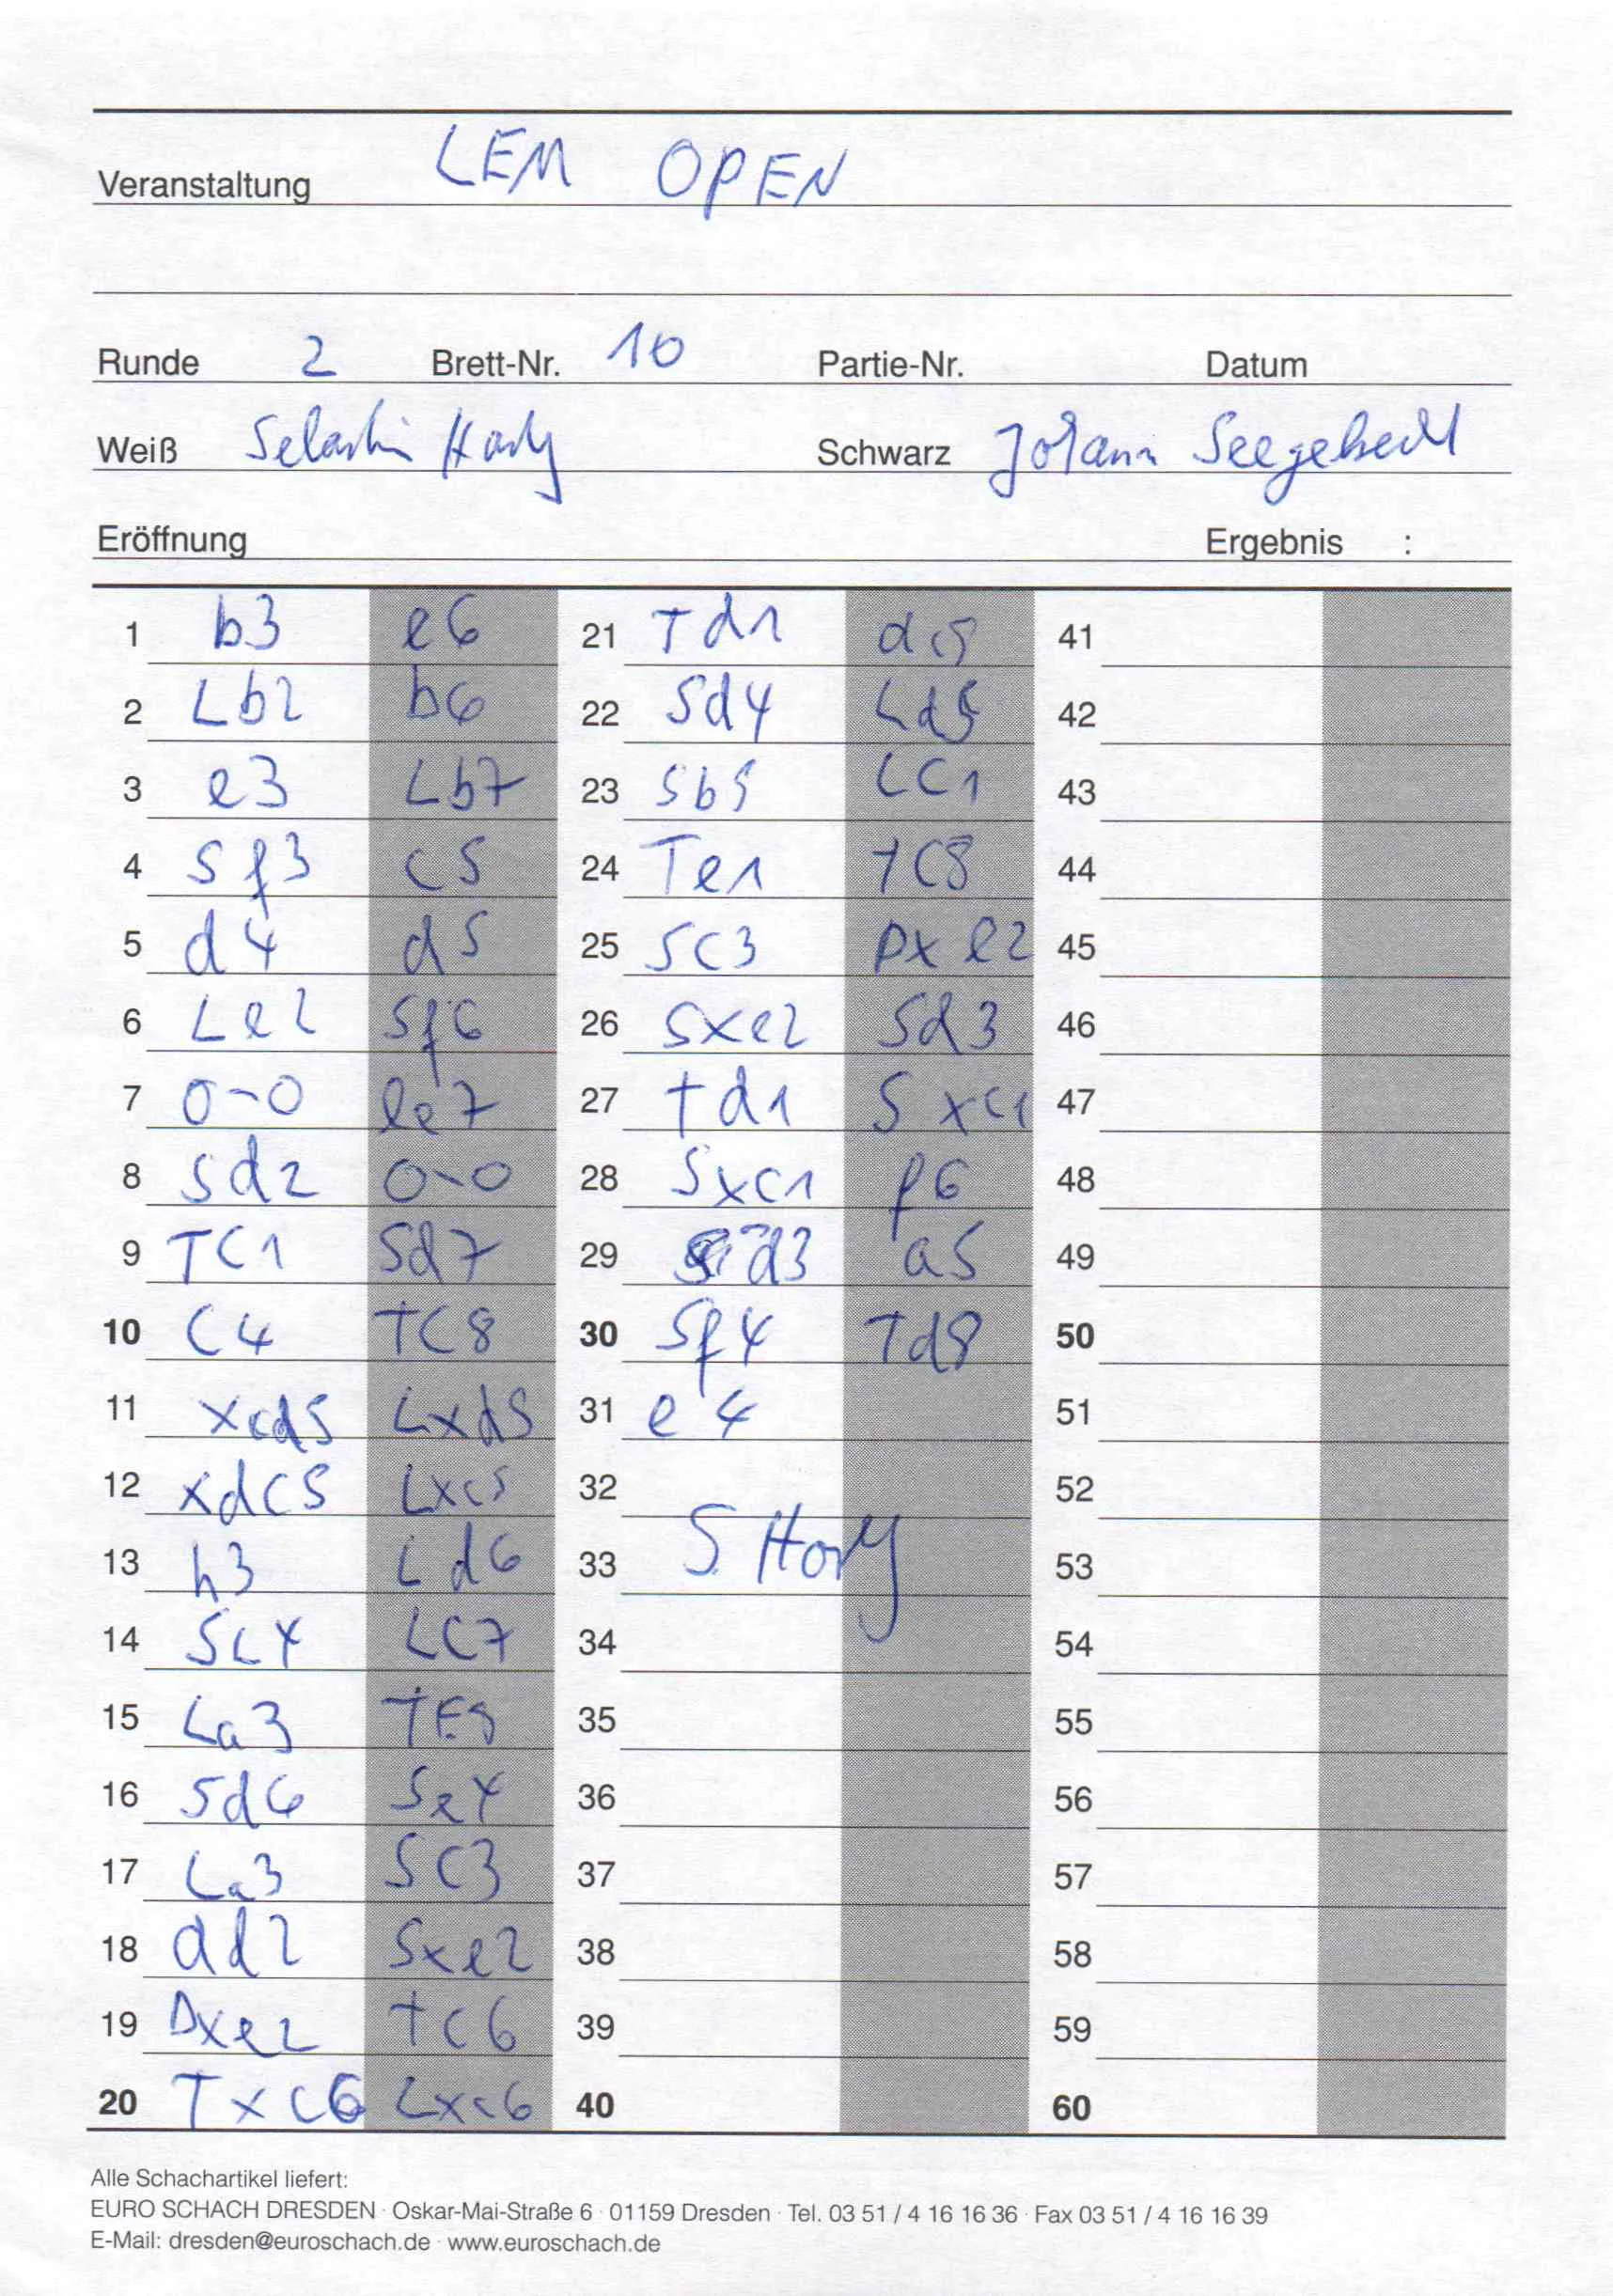 Veranstaltung LEM OPEN
Runde 2 Brett-Nr. 10 Partie-Nr. Datum
Weiß Schwarz Johann
Eröffnung Ergebnis :
1 b3 e6 21 Td1 41
2 Lb2 b6 22 Sd4 Ld5 42
3 e3 Lb7 23 Sb5 LC1 43
4 Sf3 c5 24 Te1 TC8 44
5 d4 d5 25 SC3 Dx e2 45
6 Le2 Sf6 26 Sxe2 Sd3 46
7 0-0 Le7 27 td1 S xc1 47
8 Sd2 0-0 28 Sxc1 f6 48
9 TC1 Sd7 29 d3 a5 49
10 C4 TC8 30 Sf4 Td8 50
11 xcd5 Lxd5 31 e4 51
12 xdc5 Lxc5 32 52
13 h3 Ld6 33 S. Hory 53
14 Sc4 LC7 34 54
15 La3 TE8 35 55
16 Sd6 Se4 36 56
17 La3 SC3 37 57
18 dd2 Sxe2 38 58
19 Dxe2 TC6 39 59
20 Txc6 Lxc6 40 60
Alle Schachartikel liefert:
EURO SCHACH DRESDEN · Oskar-Mai-Straße 6 · 01159 Dresden · Tel. 03 51 / 4 16 16 36 · Fax 03 51 / 4 16 16 39
E-Mail: dresden@euroschach.de · www.euroschach.de